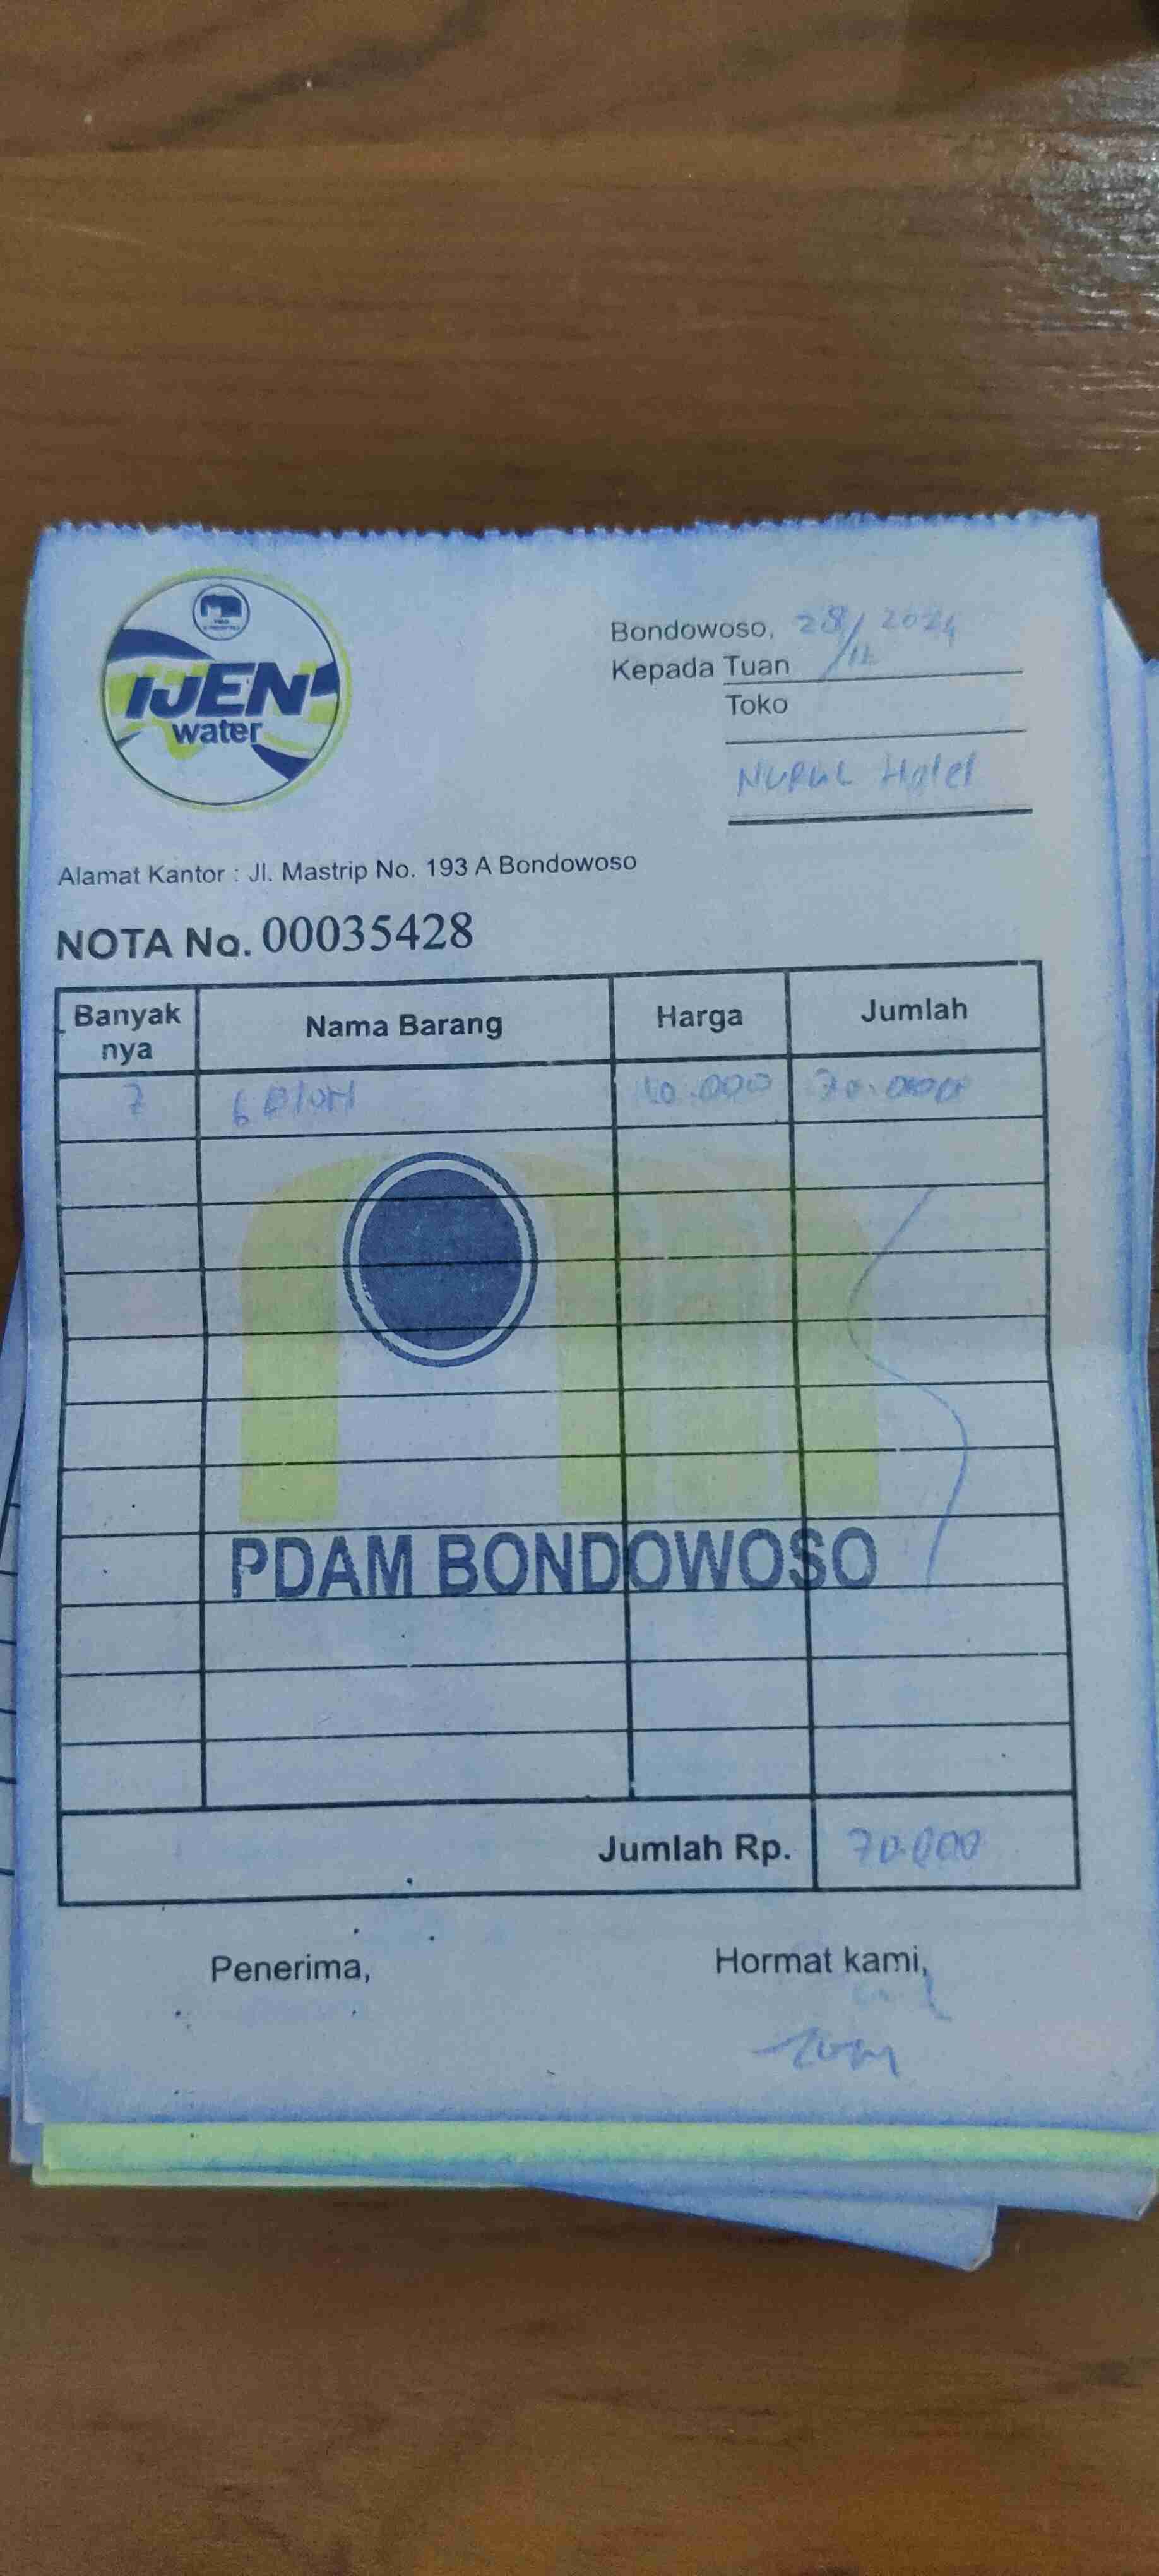 IJEN
water
Bondowoso, 28/12 2024
Kepada Tuan
Toko
Nurul Halel
Alamat Kantor : Jl. Mastrip No. 193 A Bondowoso
NOTA No. 00035428
Banyak nya Nama Barang Harga Jumlah
7 GAlon 10.000 70.000
PDAM BONDOWOSO
Jumlah Rp. 70.000
Penerima, Hormat kami,